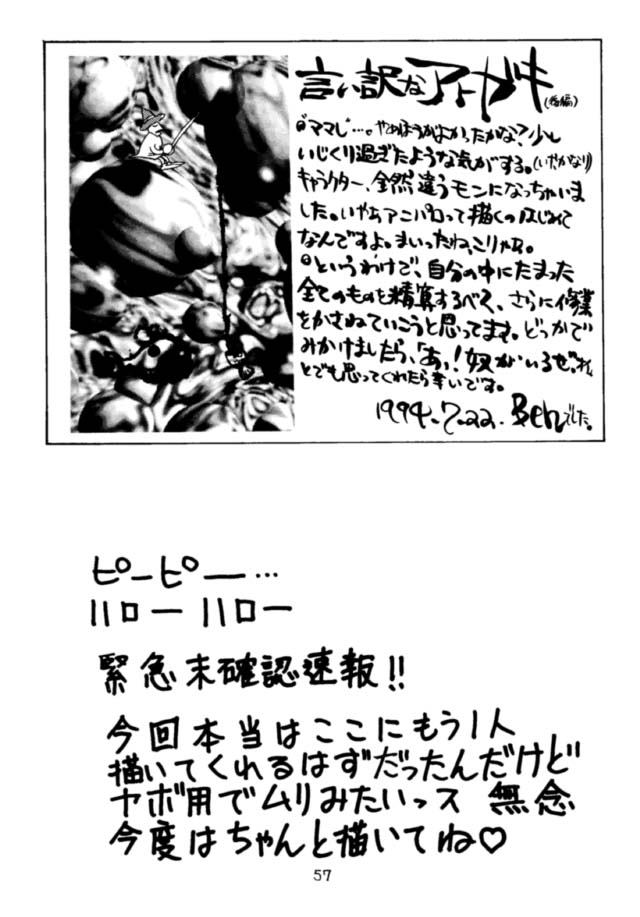 言い訳なアトガキ(後編)
"ママレ"…。やめほうがよかったかな?少し
いじくり過ぎたような気がする。(いやかなり)
キャラクター、全然違うモンになっちゃいま
した。いやぁアニパロって描くのはじめて
なんですよ。まいったね、こりゃぁ。
というわけで、自分の中にたまった
全てのものを精算するべく、さらに修業
をかさねていこうと思ってます。どっかで
みかけましたら、「あっ!奴がいるぜ。」
とでも思ってくれたら幸いです。
1994.7.22. Benでした。
ピーピー…
ハロー ハロー
緊急未確認速報!!
今回本当はここにもう1人
描いてくれるはずだったんだけど
ヤボ用でムリみたいっス 無念
今度はちゃんと描いてね♡
57